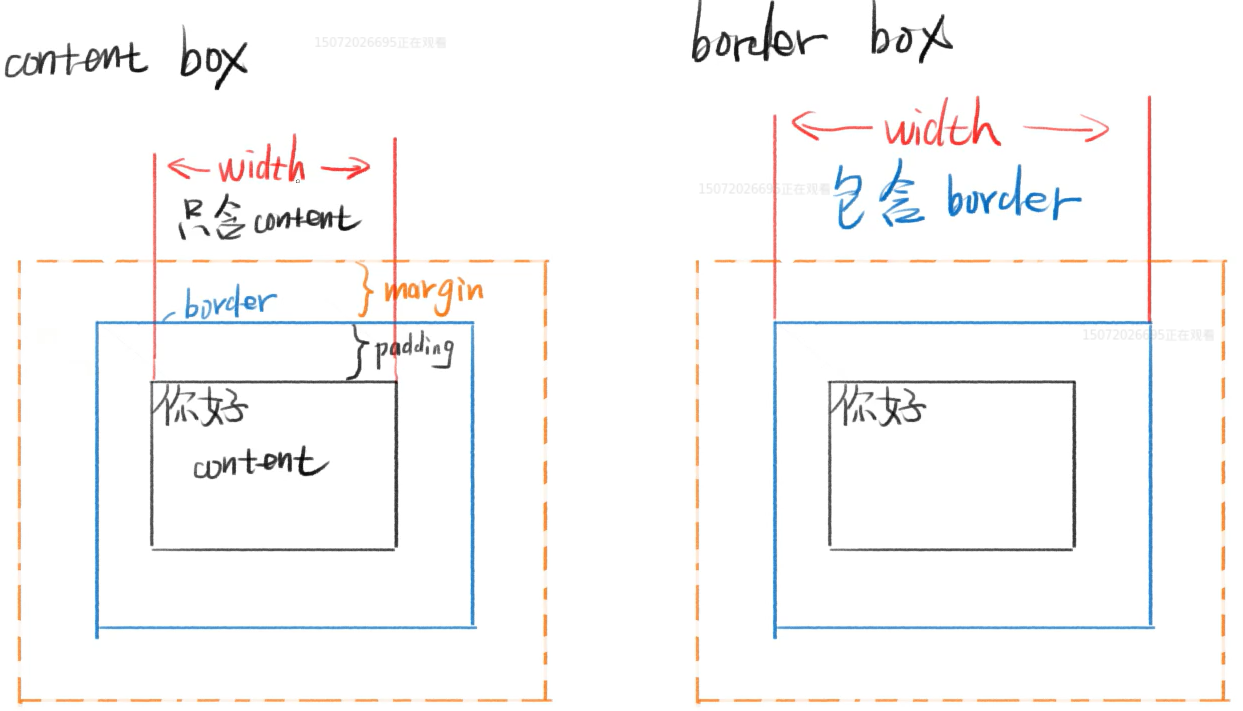 content box
15072026695正在观看
width
只含content
border
margin
padding
你好
content
border box
width
15072026695正在观看
包含border
15072026695正在观看
你好